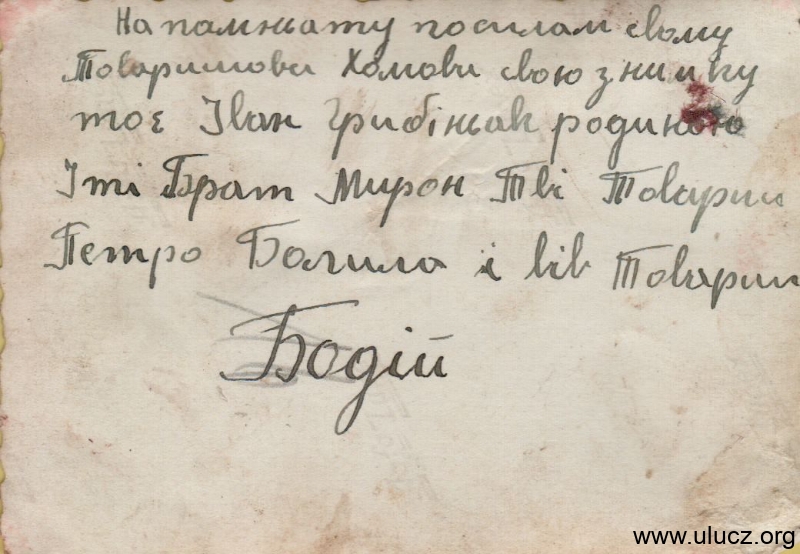 На памньату посилам свому
Товаришови Хомови свою знимку
тоє Іван Грибіньак родиною
Іті Брат Мирон Тві Товариш
Петро Балила і вів Товариш
Бодій
www.ulucz.org